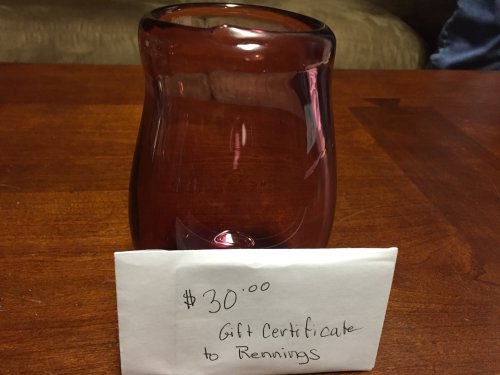 $30.00
Gift Certificate
to Rennings